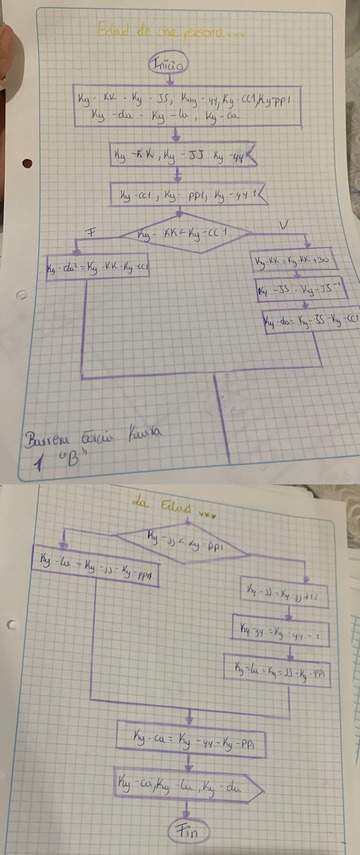 Edad de una persona...
Inicio
Ky-KK-Ky-JJ, Ky-yy, Ky-CC1, Ky-PP1
Ky-du-Ky-lu, Ky-cu
Ky-KK, Ky-JJ Ky-yy
Ky-CC1, Ky-PP1, Ky-yy1
Ky-KK<Ky-CC1
F
V
Ky-du=Ky-KK-Ky-CC1
Ky-KK=Ky-KK+30
Ky-JJ=Ky-JJ-1
Ky-du=Ky-JJ-Ky-CC1
1 "B"
La Edad
Ky-JJ<Ky-PP1
Ky-lu=Ky-JJ-Ky-PP1
Ky-JJ=Ky-JJ+12
Ky-yy=Ky-yy-1
Ky-lu=Ky=JJ-Ky-PP1
Ky-cu=Ky-yy-Ky-PP1
Ky-cu, Ky-lu, Ky-du
Fin